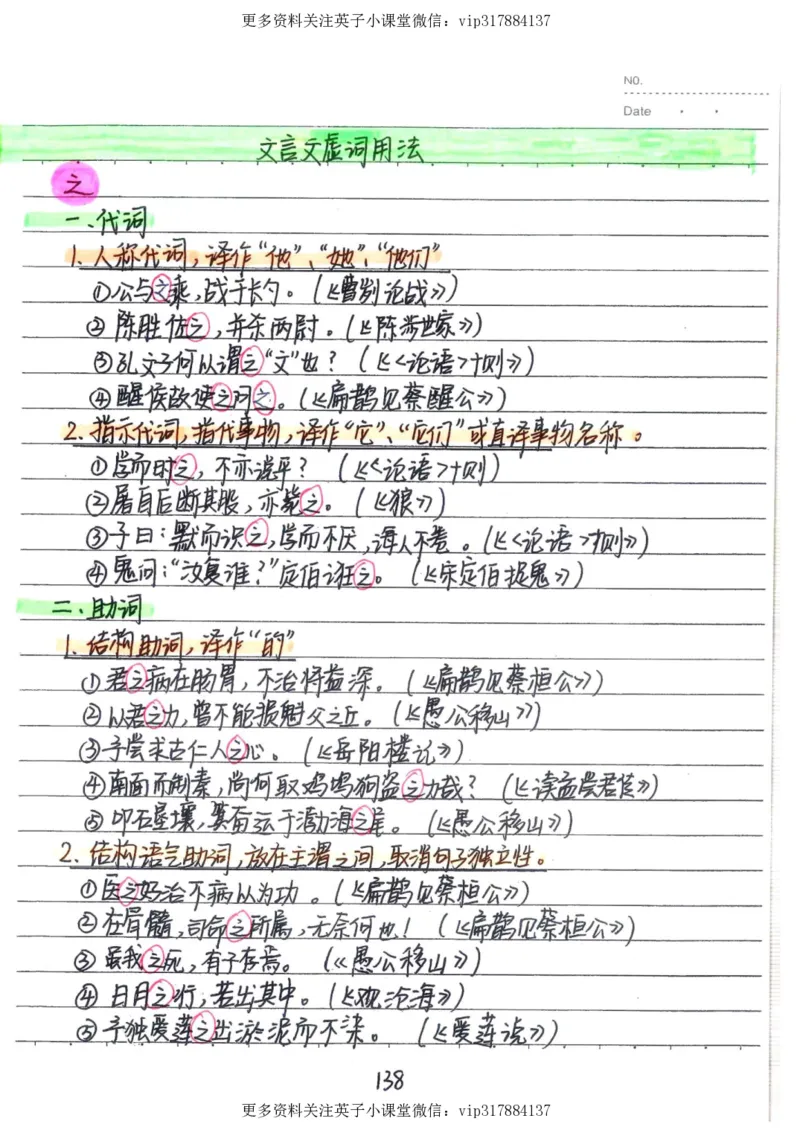 更多资料关注英子小课堂微信：vip317884137
NO.
Date
文言文虚词用法
之
一、代词
1. 人称代词，译作“他”、“她”、“他们”
①公与之乘，战于长勺。（《曹刿论战》）
② 陈胜佐之，并杀两尉。（《陈涉世家》）
③孔文子何以谓之“文”也？（《<论语>十则》）
④醒侯故使之问之。（《扁鹊见蔡醒公》）
2. 指示代词，指代事物，译作“它”、“它们”或直译事物名称。
①学而时之，不亦说乎？（《<论语>十则）
②屠自后断其股，亦毙之。（《狼》）
③子曰：默而识之，学而不厌，诲人不卷。（《<论语>十则》）
④鬼问：“汝复谁？”定伯诳之。（《宋定伯捉鬼》）
二、助词
1. 结构助词，译作“的”
①君之病在肠胃，不治将益深。（《扁鹊见蔡桓公》）
②以君之力，曾不能损魁父之丘。（《愚公移山》）
③予尝求古仁人之心。（《岳阳楼记》）
④南面而制秦，尚何取鸡鸣狗盗之力哉？（《读孟尝君传》）
⑤叩石垦壤，箕畚运于渤海之尾。（《愚公移山》）
2. 结构语气助词，放在主谓之间，取消句子独立性。
①医之好治不病以为功。（《扁鹊见蔡桓公》）
②在骨髓，司命之所属，无奈何也！（《扁鹊见蔡桓公》）
③ 虽我之死，有子存焉。（《愚公移山》）
④ 日月之行，若出其中。（《观沧海》）
⑤ 予独爱莲之出淤泥而不染。（《爱莲说》）
138
更多资料关注英子小课堂微信：vip317884137